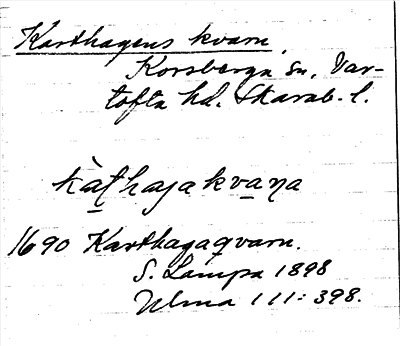 Karthagens kvarn.
Korsberga sn, Var-
tofta hd. Skarab. l.
kàt̠hajakva̠na
1690 Karthagaqvarn.
S. Lampa 1898
Ulma 111:398.